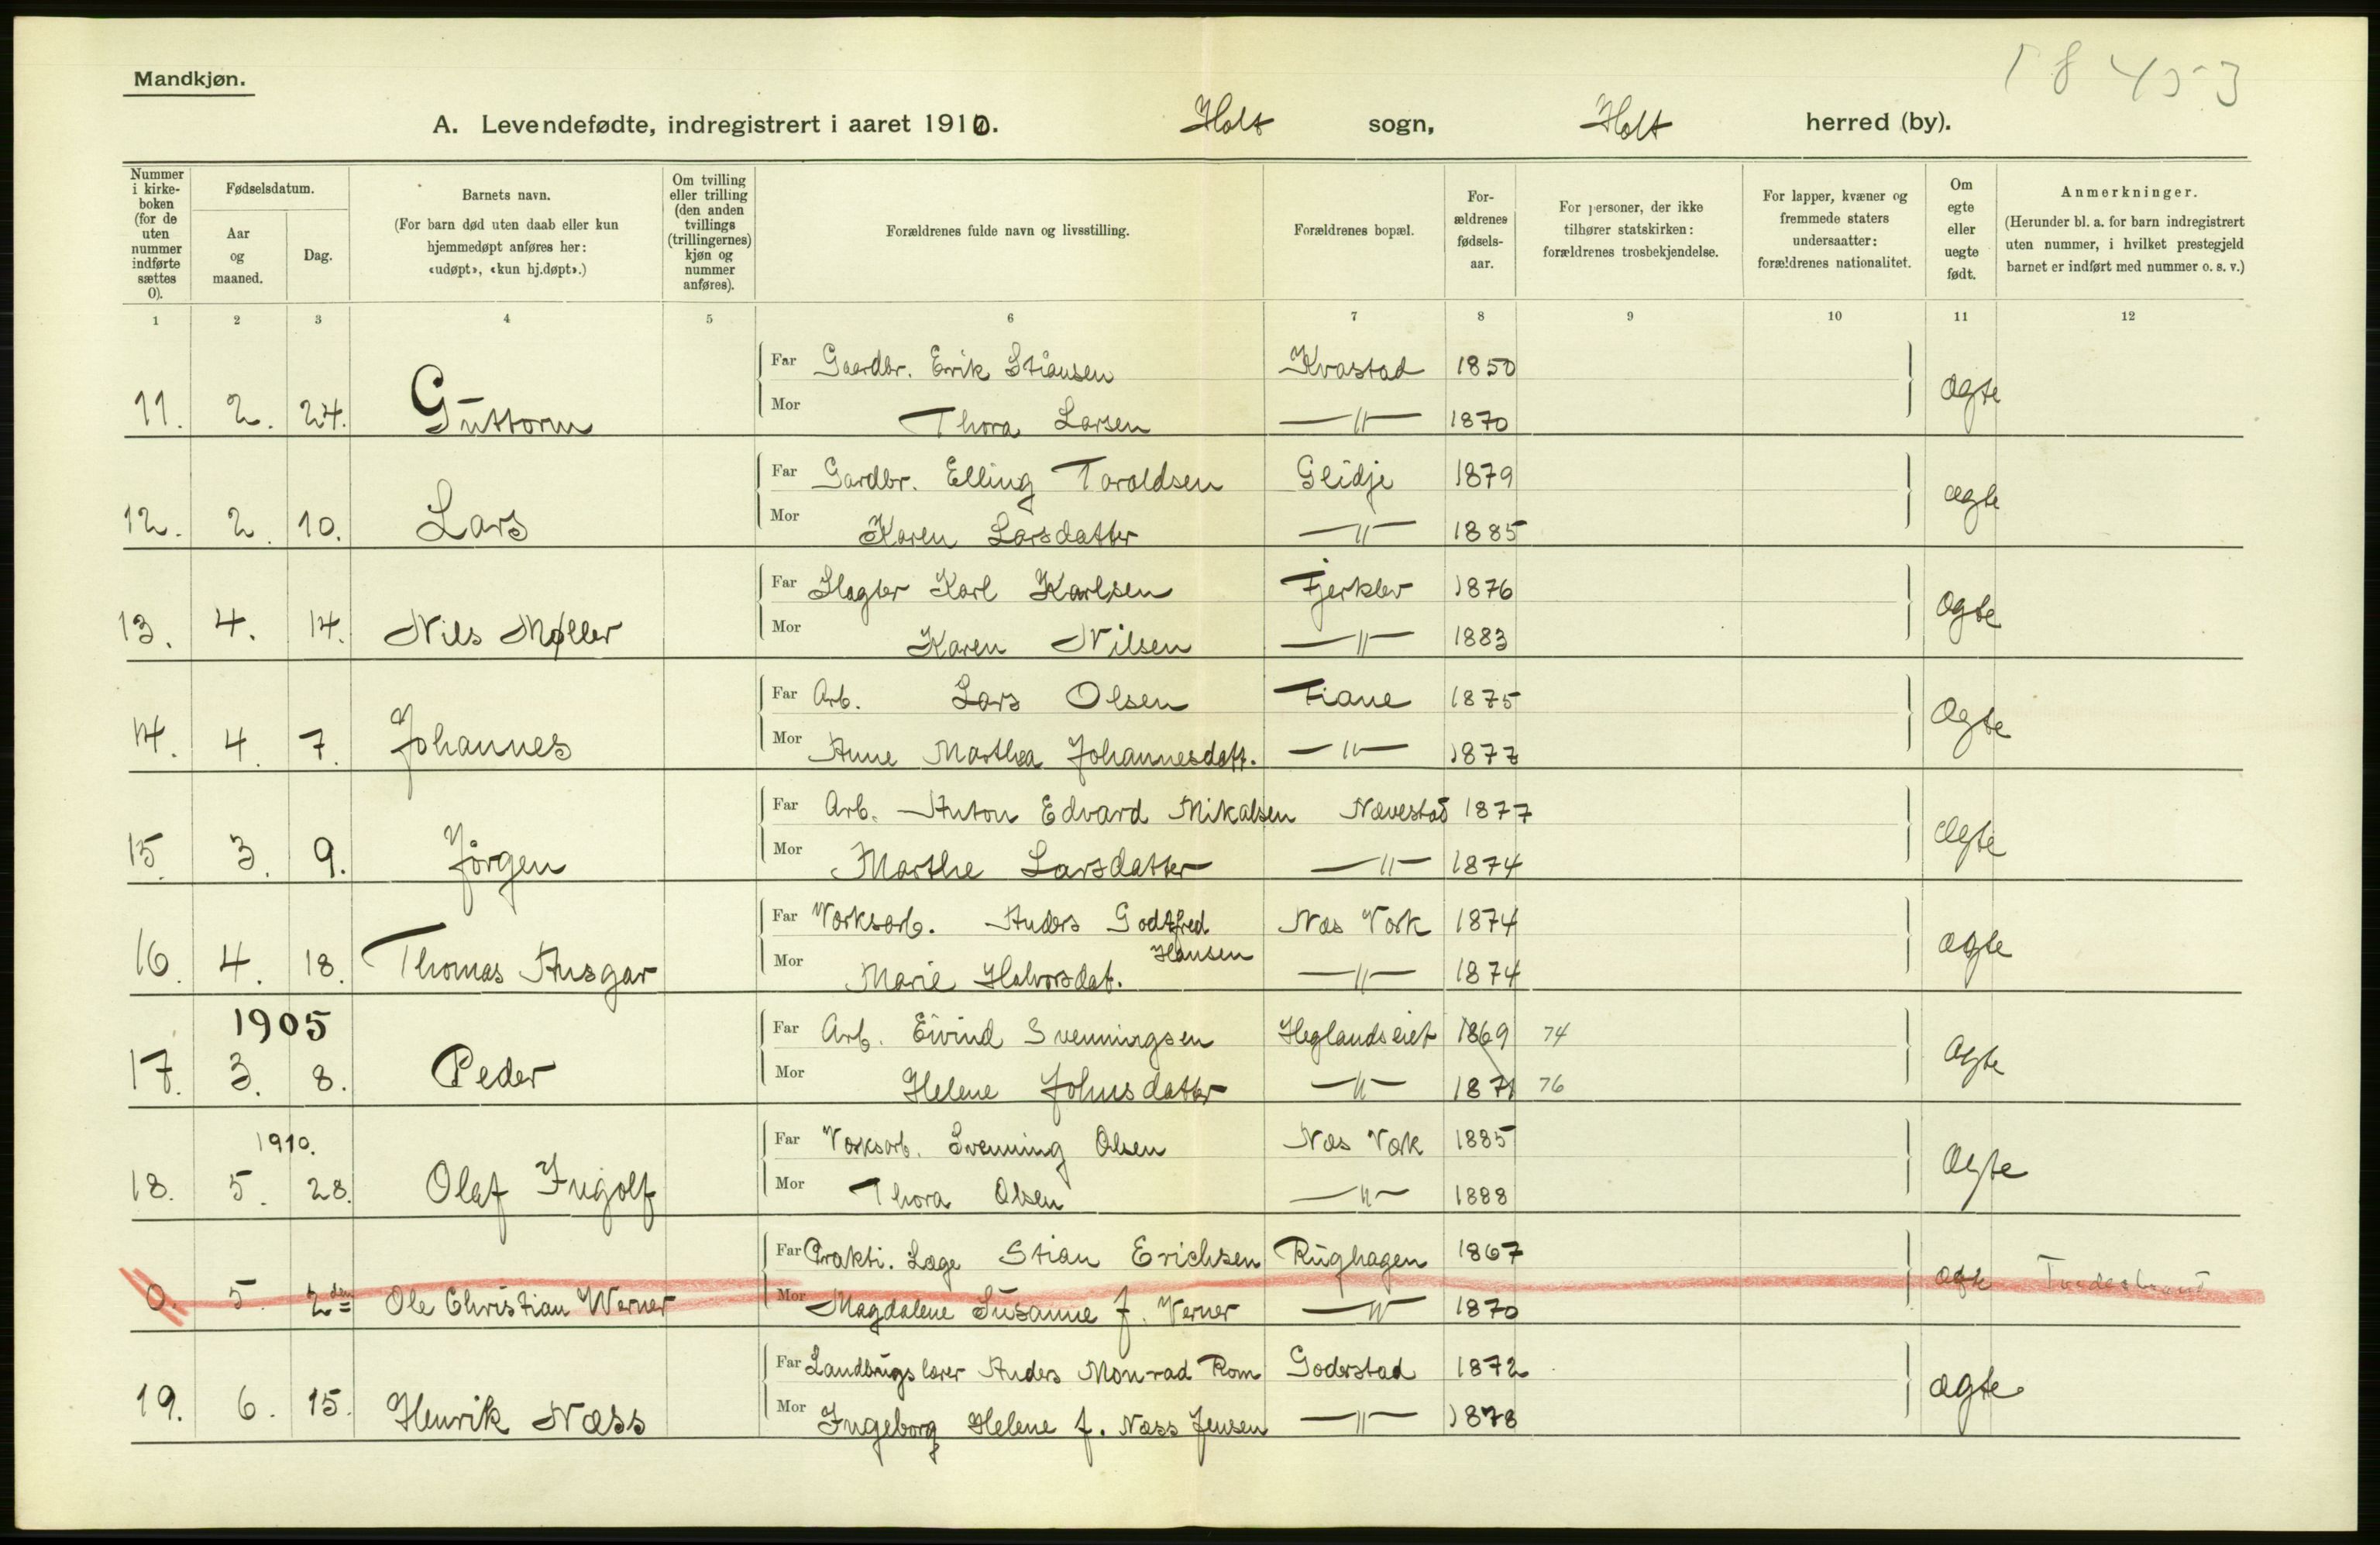 18453
Mandkjøn.
A. Levendefødte, indregistrert i aaret 1910. Holt sogn, Holt herred (by).
Nummer i kirke-boken (for de uten nummer indførte sættes 0).
Fødselsdatum.
Aar og maaned.
Dag.
Barnets navn.
(For barn død uten daab eller kun hjemmedøpt anføres her: «udøpt», «kun hj.døpt».)
Om tvilling eller trilling (den anden tvillings (trillingernes) kjøn og nummer anføres).
Forældrenes fulde navn og livsstilling.
Forældrenes bopæl.
For-ældrenes fødsels-aar.
For personer, der ikke tilhører statskirken: forældrenes trosbekjendelse.
For lapper, kvæner og fremmede staters undersaatter: forældrenes nationalitet.
Om egte eller uegte født.
Anmerkninger.
(Herunder bl. a. for barn indregistrert uten nummer, i hvilket prestegjeld barnet er indført med nummer o. s. v.)
1 2 3 4 5 6 7 8 9 10 11 12
Far Gaardbr. Erik Stiansen Kvastad 1850
11. 2. 24. Guttorm Mor Thora Larsen —"— 1870 ægte
Far Gardbr. Elling Taraldsen Gleidje 1879
12. 2. 10. Lars Mor Karen Larsdatter —"— 1885 ægte
Far Slagter Karl Karlsen Fjerklev 1876
13. 4. 14. Nils Møller Mor Karen Nilsen —"— 1883 ægte
Far Arb. Lars Olsen Fiane 1875
14. 4. 7. Johannes Mor Anne Marthea Johannesdatt. —"— 1877 Ægte
Far Arb. Anton Edvard Mikalsen Nævestad 1877
15. 3. 9. Jörgen Mor Marthe Larsdatter —"— 1874 Ægte
Far Værksarb. Anders Godtfred Hansen Næs Værk 1874
16. 4. 18. Thomas Ansgar Mor Marie Halvorsdat. —"— 1874 ægte
1905
Far Arb. Eivind Svenningsen Heglandseiet 1869 74
17. 3. 8. Peder Mor Helene Johnsdatter —"— 1871 76 Ægte
1910.
Far Værksarb. Svenning Olsen Næs Værk 1885
18. 5. 28. Olaf Ingolf Mor Thora Olsen —"— 1888 Ægte
Far Prakti. Læge Stian Erichsen Rughagen 1867
0. 5. 2den Ole Christian Werner Mor Magdalene Susanne f. Verner —"— 1870 ægte Tvedestrand
Far Landbrugslærer Anders Monrad Rom Goderstad 1872
19. 6. 15. Henrik Næss Mor Ingeborg Helene f. Næss Jensen —"— 1878 ægte